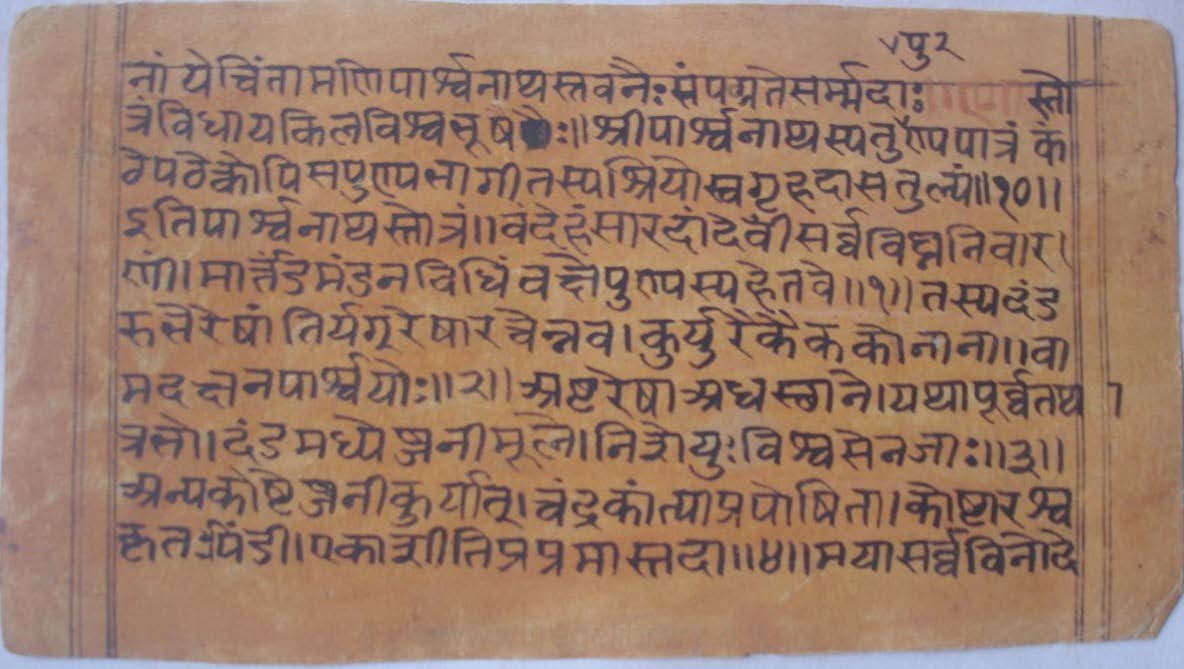 पु२
नां ये चिंतामणिपार्श्वनाथस्तवनैः संपद्यते सर्म्मदाः स्तो
त्रं विधायकिलविश्वभूषणैः॥ श्रीपार्श्वनाथस्य तु पुण्यपात्रं कं
ठे पठेत्कोपि स पुण्यभागी तस्य श्रियो स्वगृहदासतुल्यं॥१०॥
इति पार्श्वनाथस्तोत्रं॥ वंदेहं सारदां देवीं सर्व्वविघ्ननिवार
णीं। मार्त्तंडमंडनविधिं वक्ष्ये पुण्यस्य हेतवे॥१॥ तस्य दंड
तिर्यग् रेषा रचेन्नव। कुर्युरेकैक कोनाना॥ वा
मदक्षनपार्श्वयोः॥२॥ अष्टरेषा अधस्छाने। यथापूर्व्वतथ
दंडमध्ये मूले। विश्वसेनजाः॥३॥
अन्यकोष्टे कुर्यात्। चंद्रकांत्याप्रपोषिता। कोष्टारश्व
कृत पिंडी। एकाशीतिप्रप्रमास्तदा॥४॥ मया सर्व्वविनोदे